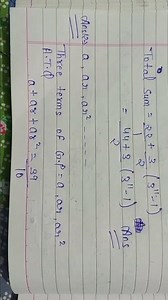 Total Sum = 22 + 3/2 (3¹¹-1)
= 44 + 3 (3¹¹-1)/2 Ans
a, ar, ar² ------
Three terms of G.P = a, ar, ar²
A.T.Q
a + ar + ar² = 39/10